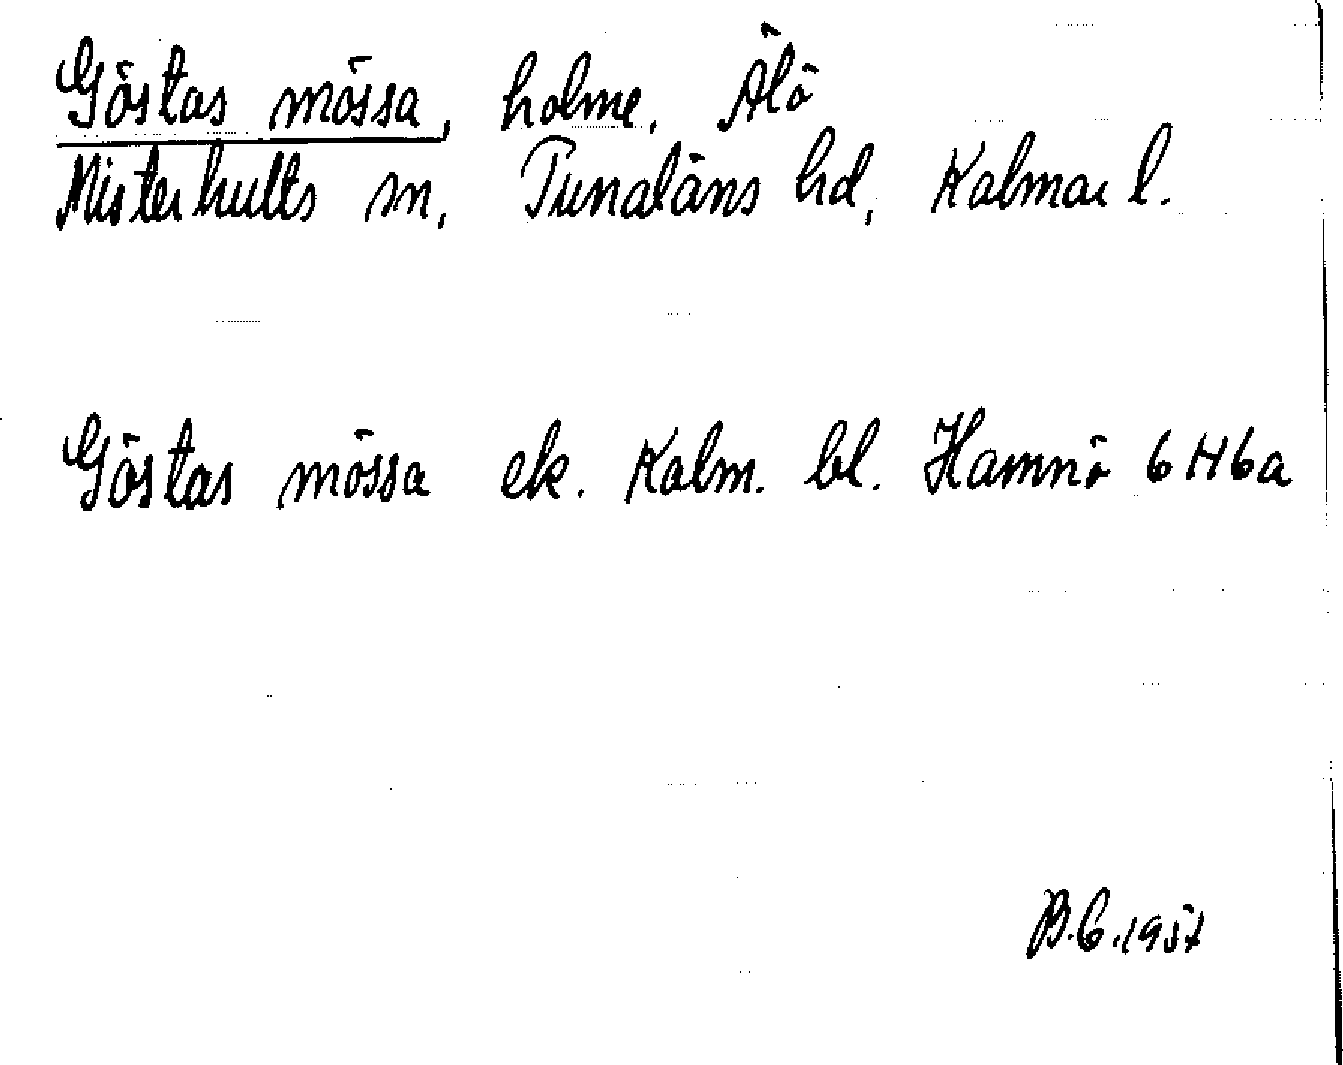 Göstas mössa, holme, Älö
Misterhults sn, Tunaläns hd, Kalmar l.
Göstas mössa ek. Kalm. bl. Hamnö 6H6a
B.C.1957